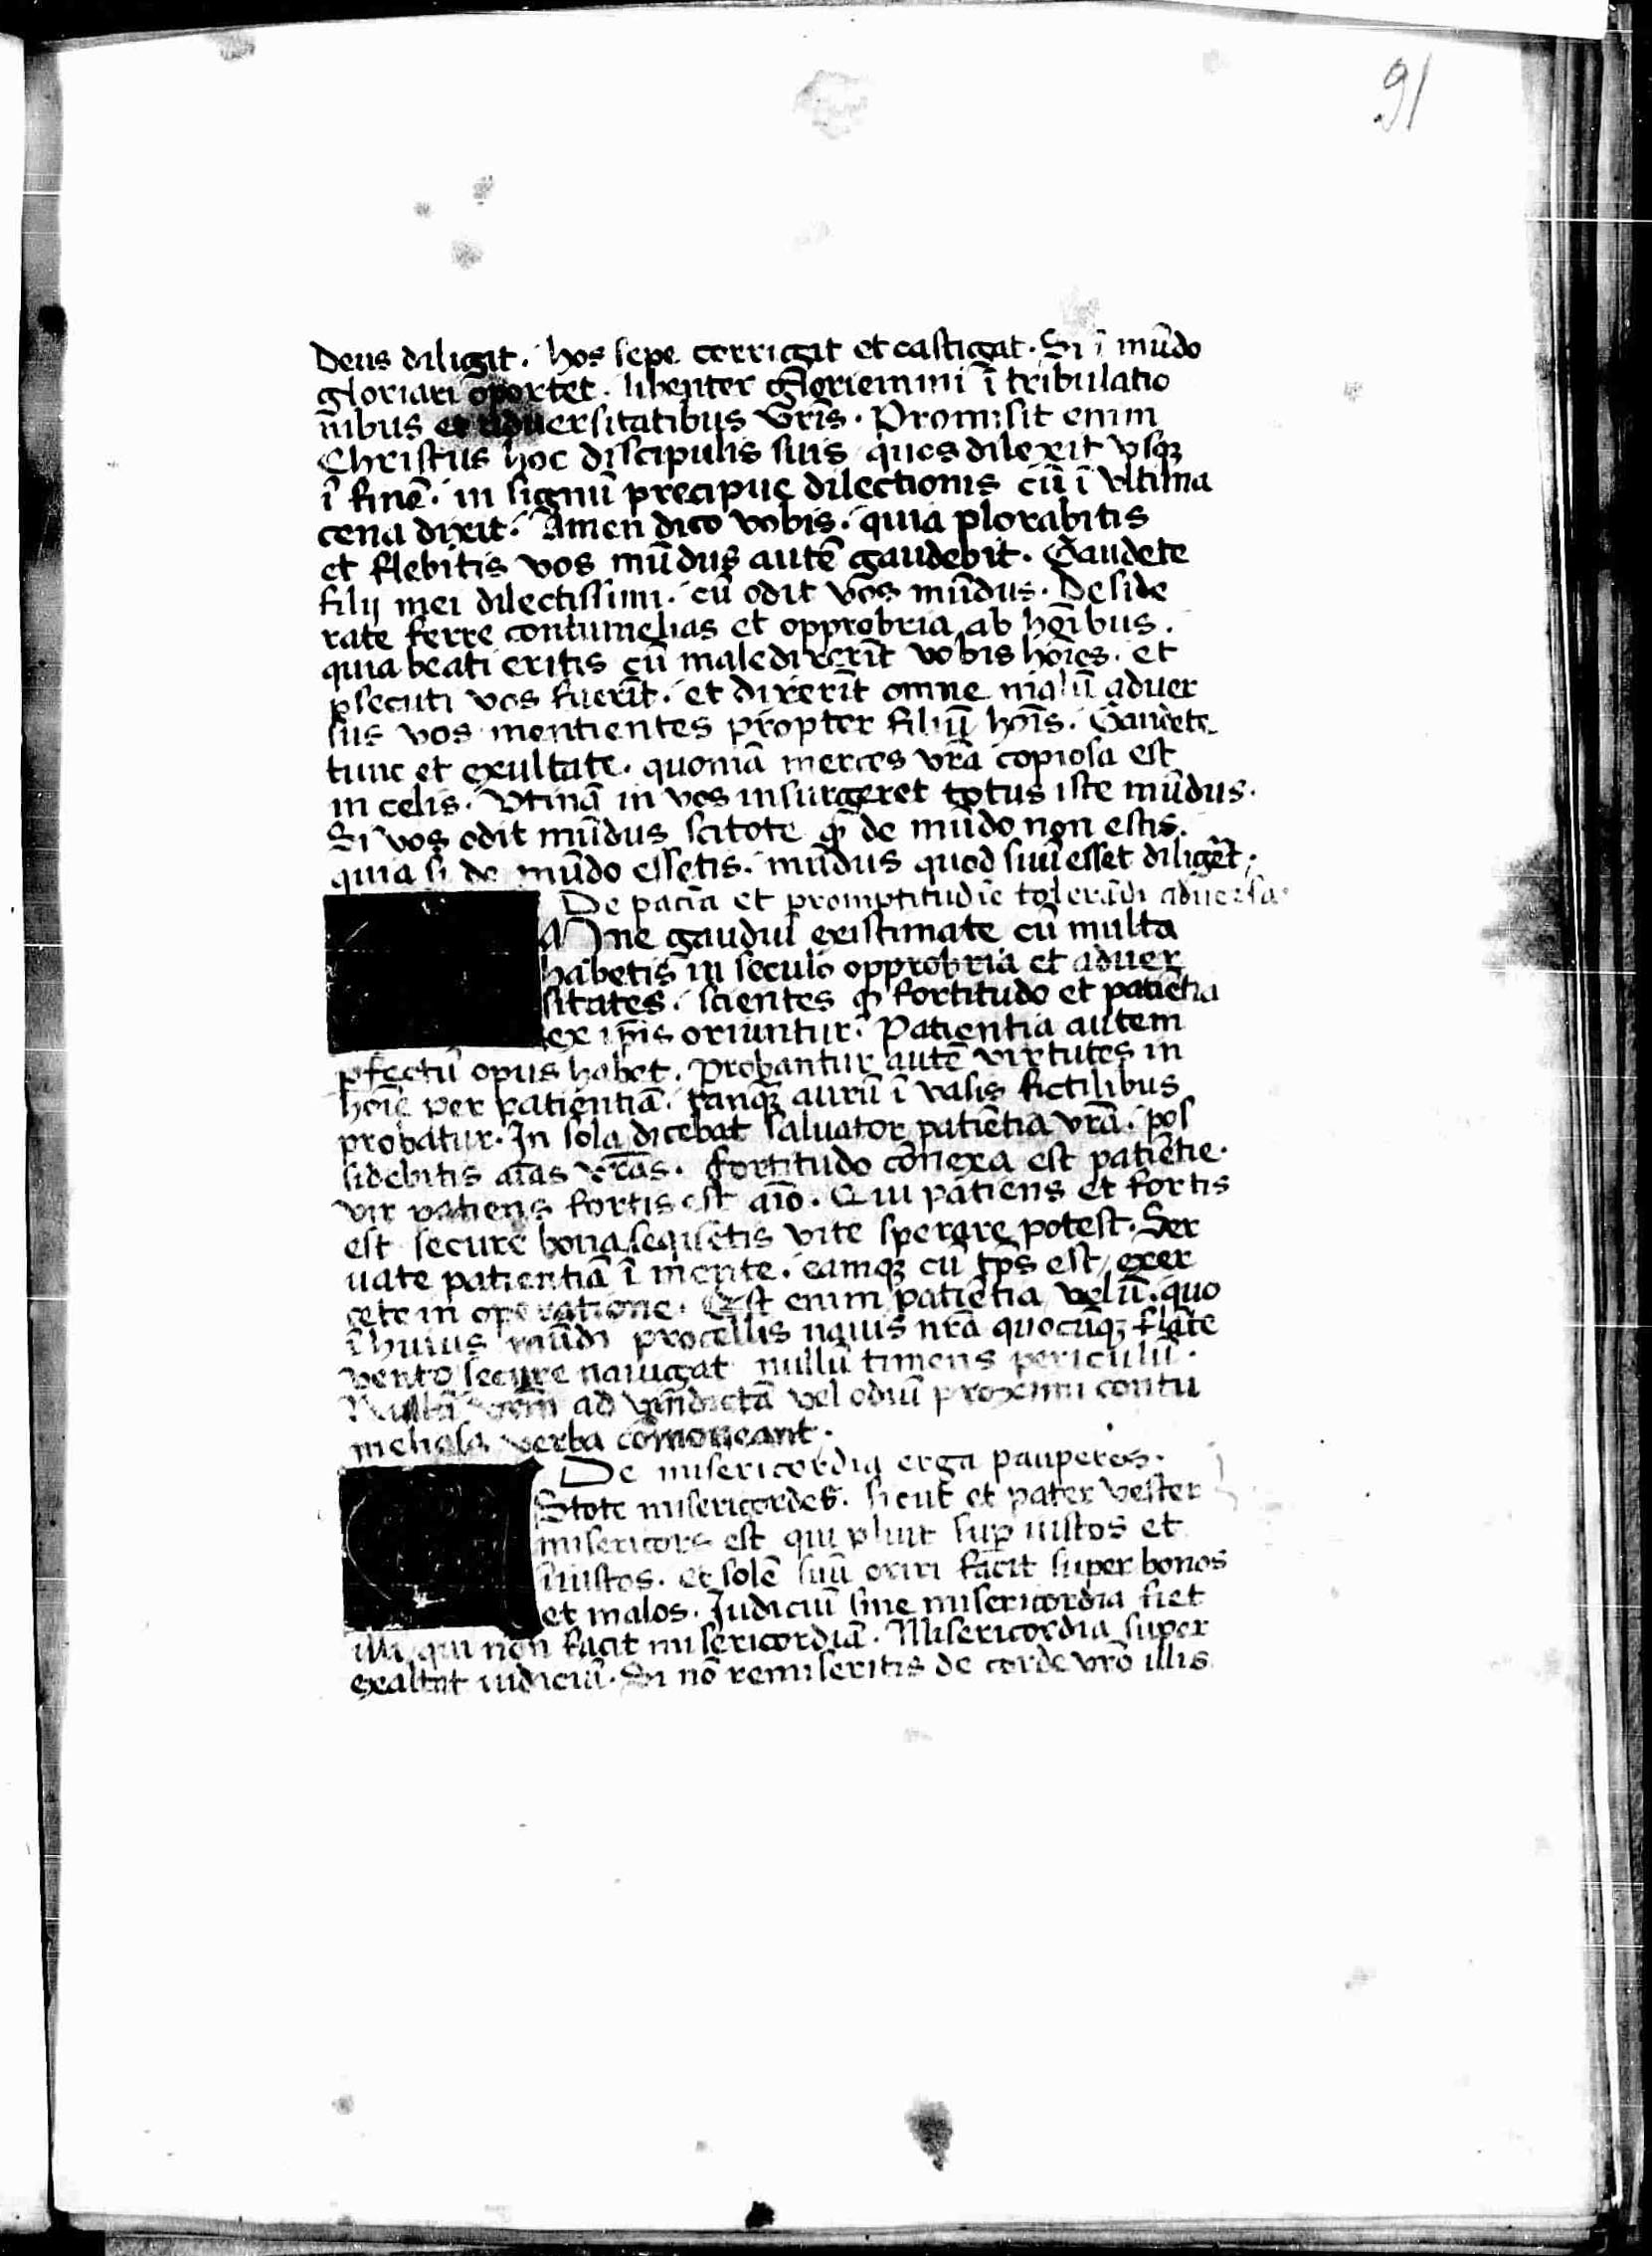 91
Deus diligit. hos sepe corrigit et castigat. Si ī mūdo
gloriari oportet. libenter gloriemini ī tribulatio
nibus et adversitatibus vr̄is. Promisit enim
Christus hoc discipulis suis quos dilexit vsqꝫ
ī finē. in signū precipue dilectionis cū ī vltima
cena dixit. Amen dico vobis. quia plorabitis
et flebitis vos mūdus autē gaudebit. Gaudete
filij mei dilectissimi. cū odit vos mūdus. Deside
rate ferre contumelias et opprobria ab hoībus.
quia beati eritis cū maledixerīt vobis hoīes. et
ꝑsecuti vos fuerīt. et dixerīt omne malū aduer
sus vos mentientes propter filiū hoīs. Gaudete
tunc et exultate. quoniā merces vr̄a copiosa est
in celis. Vtinā in vos insurgeret totus iste mūdus.
Si vos odit mūdus scitote ꝙ de mūdo non estis.
quia si de mūdo essetis. mūdus quod suū esset diliget.
De pacīa et promptitudīe tolerādi aduersa.
Mne gaudiū existimate cū multa
habetis in seculo opprobria et aduer
sitates. scientes ꝙ fortitudo et patiētia
ex ip̄is oriuntur. Patientia autem
ꝑfectū opus habet. Probantur autē virtutes in
hoīe per patientiā. tanqꝫ aurū ī vasis fictilibus
probatur. In sola dicebat saluator patiētia vr̄a. pos
sidebitis aīas vr̄as. fortitudo cōnexa est patiētie.
vir patiens fortis est aīo. Qui patiens et fortis
est secure bona seqūetis vite sperare potest. Ser
uate patientiā ī mente. eamqꝫ cū tp̄s est exer
cete in operatione. Est enim patiētia velū. quo
ī huius mūdi procellis nauis nr̄a quocūqꝫ flāte
vento secure nauigat nullū timens periculū.
ad vindictā vel odiū proximi contu
meliosa verba cōmoueant.
De misericordia erga pauperes.
Stote misericordes. sicut et pater vester
misericors est qui pluit suꝑ iustos et
īiustos. et solē suū oriri facit super bonos
et malos. Iudiciū sine misericordia fiet
illi qui non facit misericordiā. Misericordia super
exaltat iudiciū. Si nō remiseritis de corde vr̄o illis